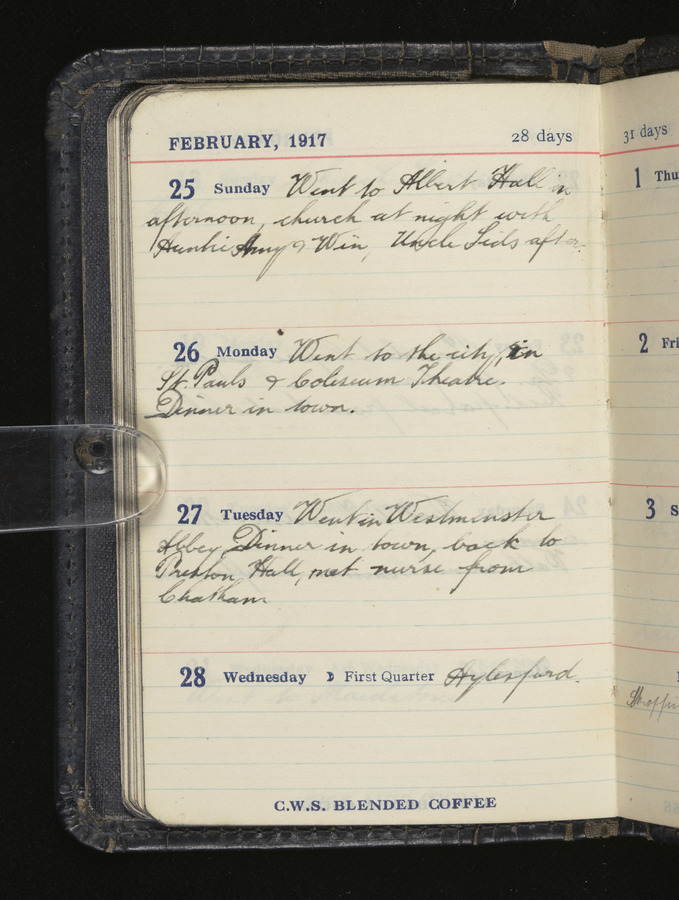 FEBRUARY, 1917 28 days
25 Sunday Went to Albert Hall in
afternoon, church at night with
Auntie Amy & Win, Uncle Sids after.
26 Monday Went to the city, in
St. Pauls & Coliseum Theatre.
Dinner in town.
27 Tuesday Went in Westminster
Abbey Dinner in town, back to
Preston Hall, met nurse from
Chatham
28 Wednesday ☽ First Quarter Aylesford.
C.W.S. BLENDED COFFEE
31 days
1 Thu
2 Fri
3 S
Shoppi